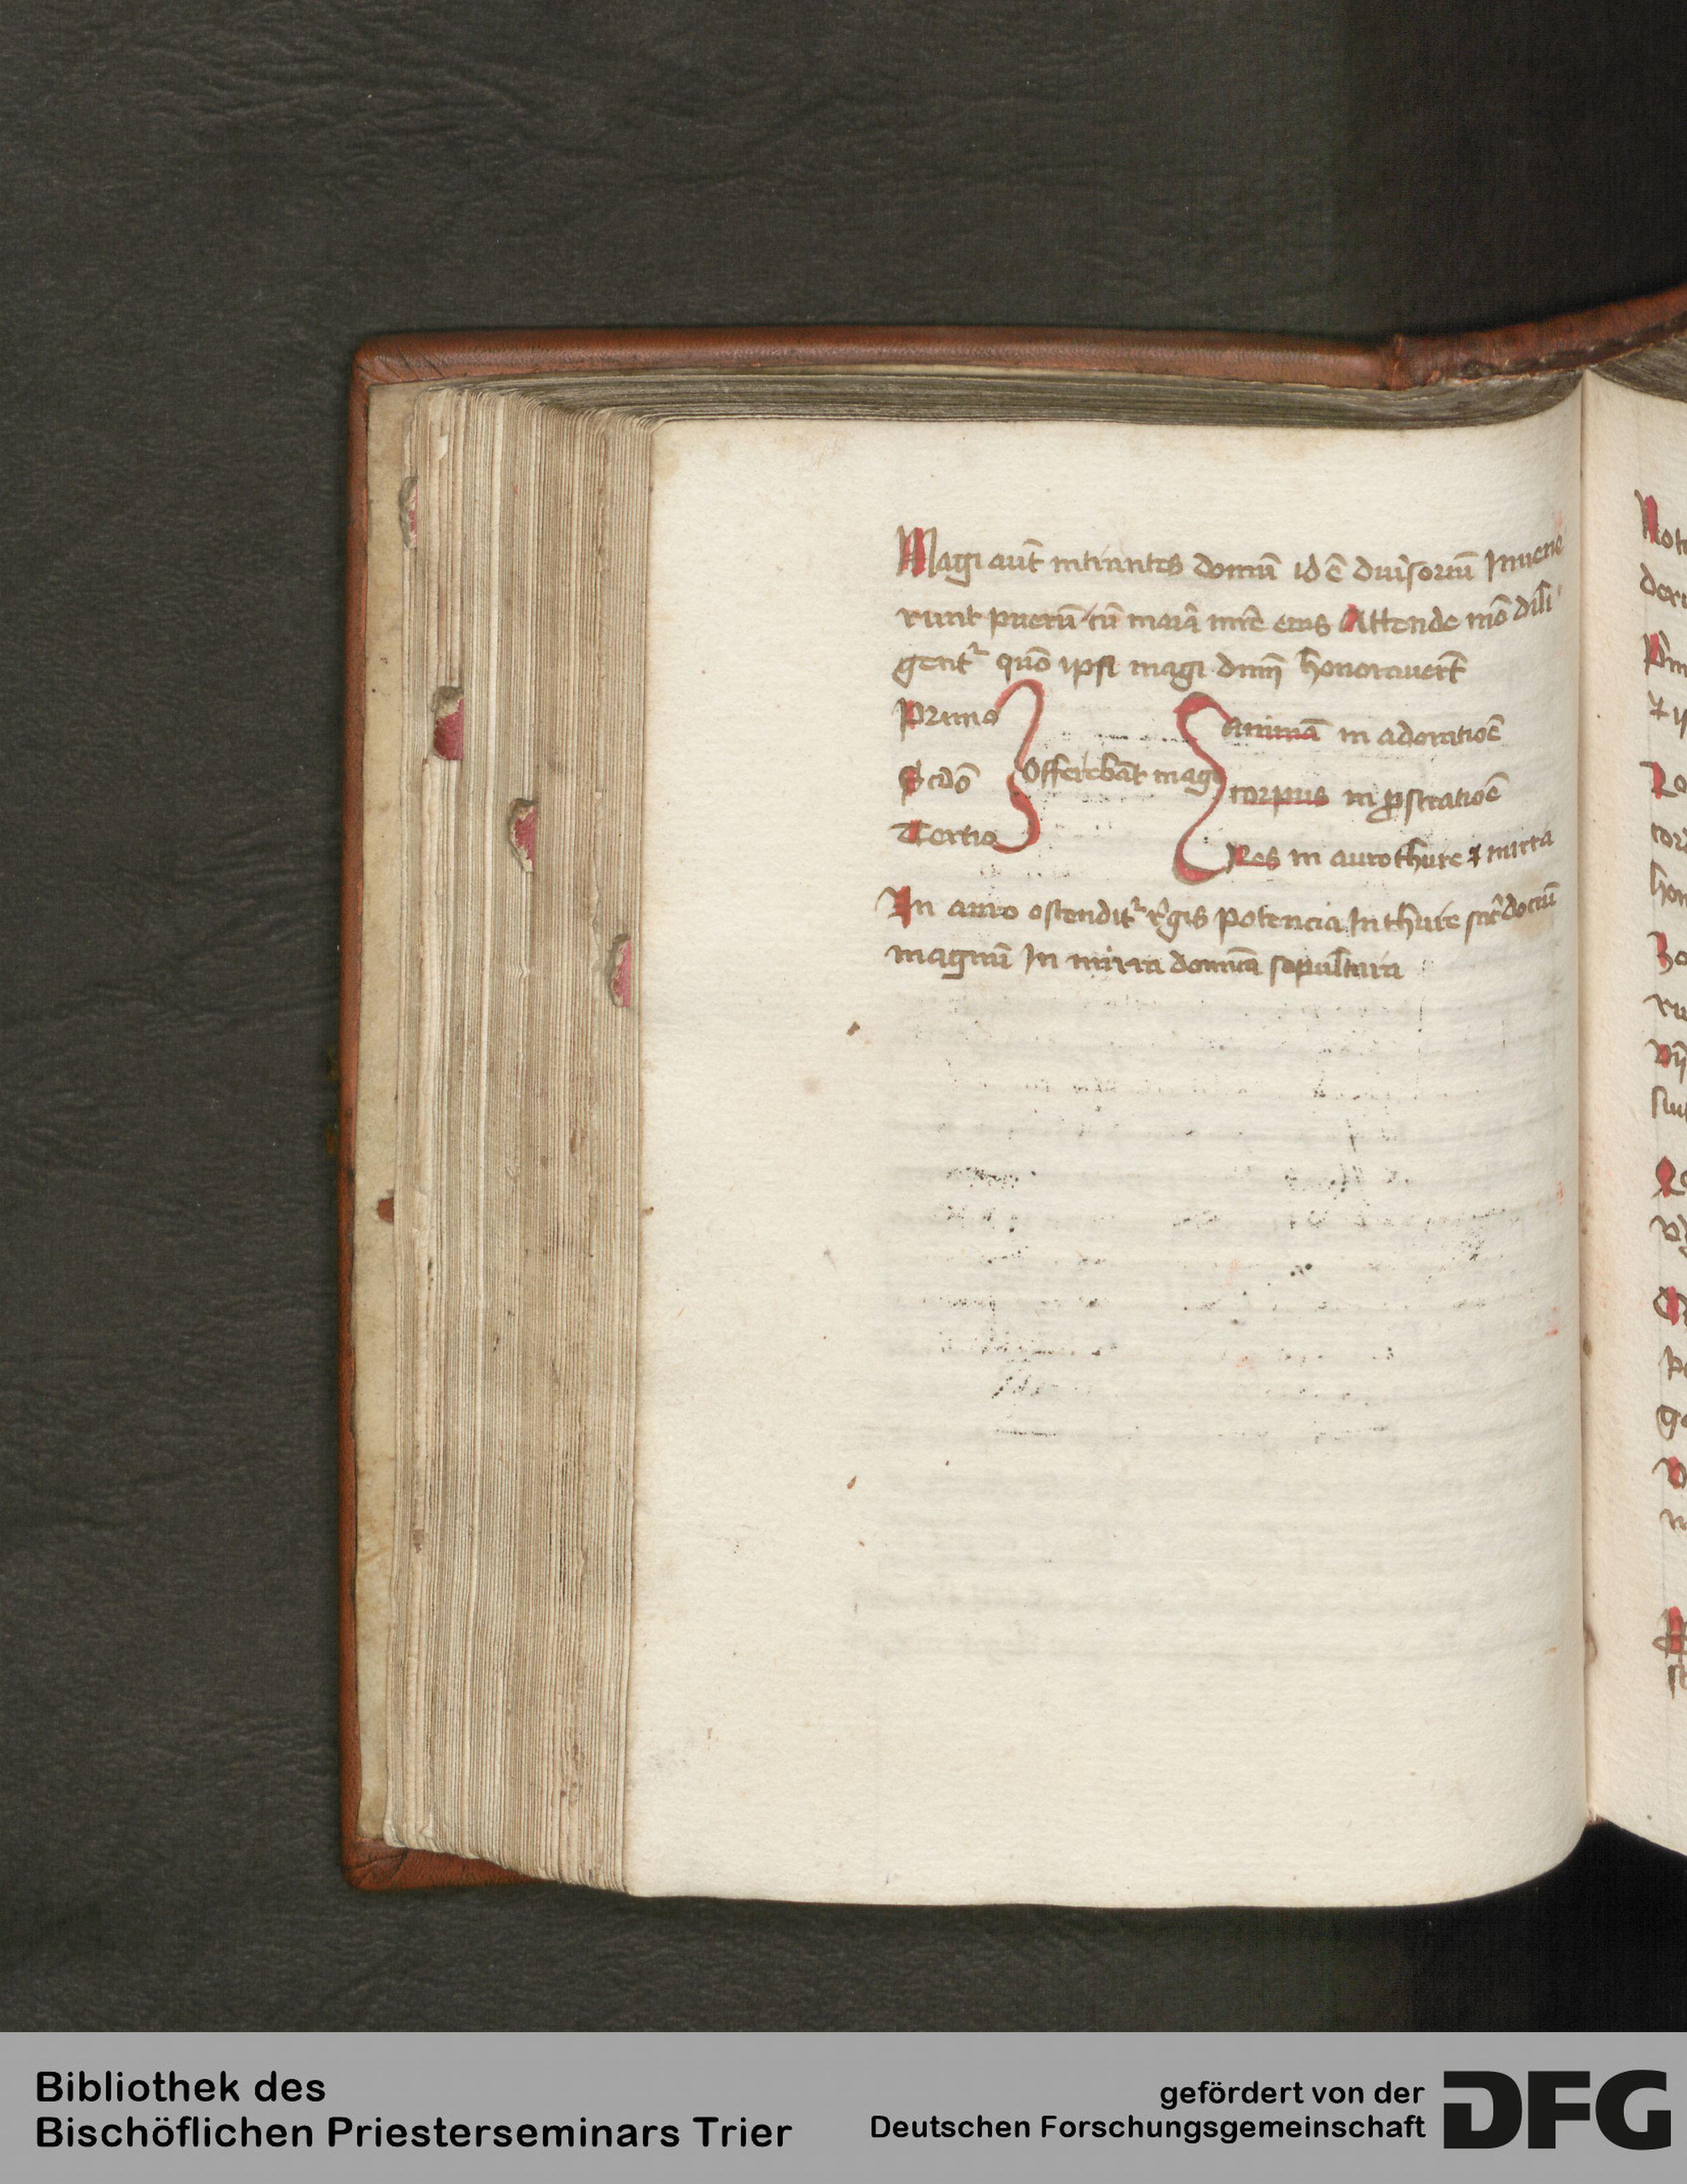 Magi aut̄ intrantes domū id ē diuͥsoriū Inuene
runt puerū cū maiā mr̄e eius Attende mō dili
gentᷣ quō ipsi magi dnm̄ honorauert̄
Primo
Scd̄o
Tertio
Offerebāt magi
animā in adoratioē
corpus in ꝓstratioē
Res in auro thure ⁊ mirra
In auro ostenditᷣ rͤgis potencia In thure sac̄dociū
magnū In mirra domīca sepultura
Bibliothek des
Bischöflichen Priesterseminars Trier
gefördert von der
Deutschen Forschungsgemeinschaft
DFG